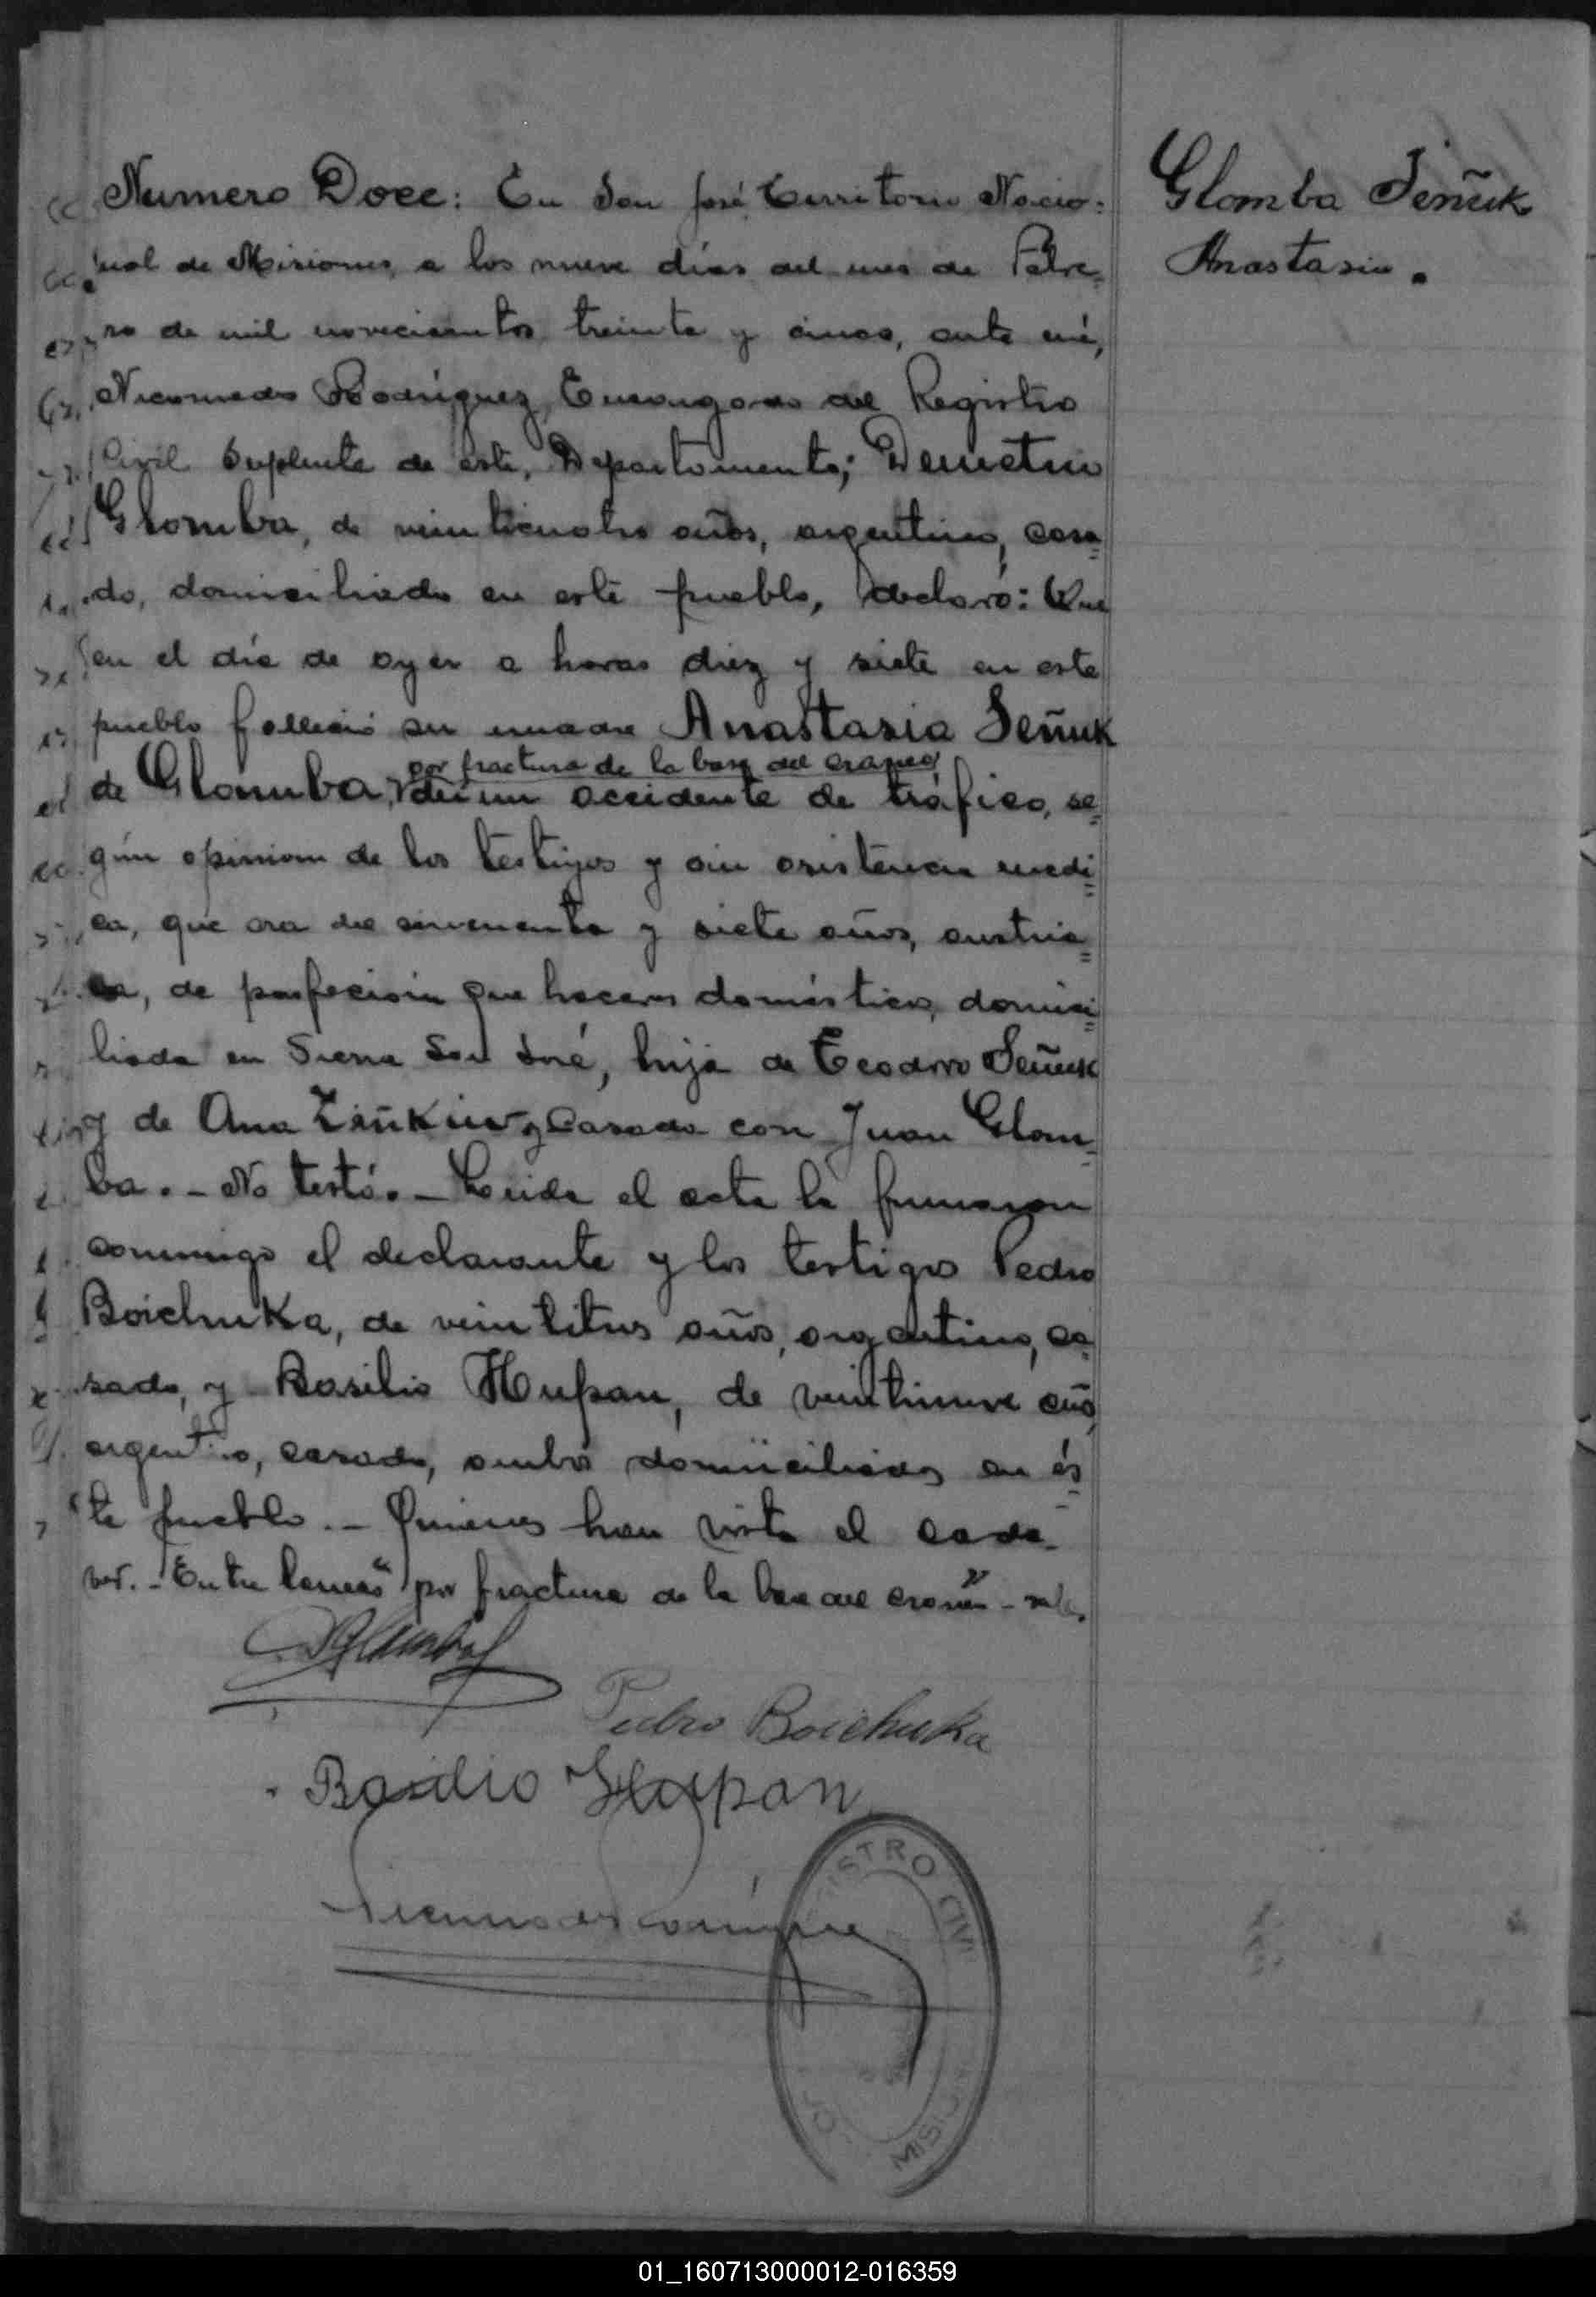 Numero Doce: En San José Territorio Nacio=
nal de Misiones, a los nueve días del mes de Febre=
ro de mil novecientos treinta y cinco, ante mí,
Nicomedes Rodríguez, Encargado del Registro
Civil Suplente de este, Departamento; Demetrio
Glomba, de veinticuatro años, argentino, casa=
do, domiciliado en este pueblo, declaró: Que
en el día de ayer a horas diez y siete en este
pueblo falleció su madre Anastasia Señuk
por fractura de la base del craneo
de Glomba, de un accidente de tráfico, se=
gún opinion de los testigos y sin asistencia medi=
ca, que era de cincuenta y siete años, austria=
ca, de profección que haceres domésticos, domici=
liada en Sierra San José, hija de Teodoro Señuk
y de Ana Ziñkiw y Casada con Juan Glom=
ba. - No testó. - Leida el acta la firmaron
conmigo el declarante y los testigos Pedro
Boichuka, de veintitres años, argentino, ca=
sado, y Basilio Hupan, de veintinueve años,
argentino, casado, ambos domiciliados en és=
te pueblo. - Quienes han visto el cada-
ver. - Entre lineas "por fractura de la base del craneo" - vale.
DGlomba
Pedro Boichuka
Basilio Hupan
Nicomedes Rodríguez
REGISTRO CIVIL
MISIONES
Glomba Señuk
Anastasia.
01_160713000012-016359